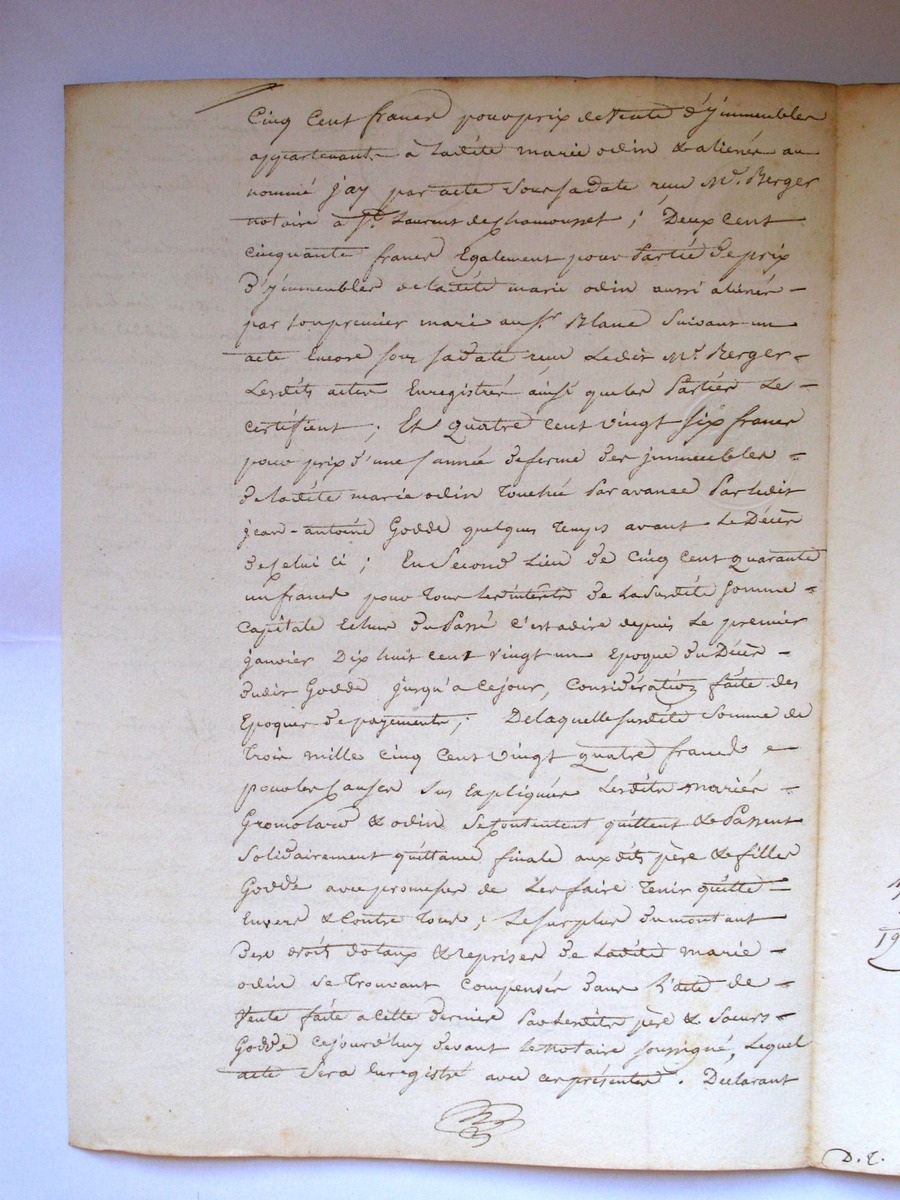 Cinq Cent francs pour prix de Vente d'jmmeubles
appartenants à Ladite marie odin & aliénés au
nommé jay par acte Sous sa date reçu Me. Berger
notaire à St. Laurent de Chamousset ; Deux cent
cinquante francs Egalement pour Partie de prix
D'jmmeubles de ladite marie odin aussi aliénés -
par son premier mari au Sr. Blanc Suivant un
acte Encore sous sa date reçu Ledit Me. Berger -
Lesdits actes Enregistrés ainsi que les Parties Le -
Certifient ; Et Quatre Cent Vingt Six francs
pour prix d'une année de ferme des jmmeubles -
de ladite marie odin Touchée Par avance Par ledit
jean - antoine Godde quelques temps avant Le Décès
de Celui Ci ; En Second Lieu de Cinq Cent quarante
un francs pour Tous Les intérêts de La Susdite Somme -
Capitale Echus du Passé C'est a dire depuis Le premier
janvier Dix huit cent vingt un Epoque du Décès -
dudit Godde jusqu'a Ce jour, Considération faite des
Epoques de payements ; De laquelle Susdite Somme de
Trois mille Cinq Cent Vingt quatre francs e
pour les Causes Sus Expliquées Lesdits mariés -
Gromolard & odin Se Contentent quittent & Passent
Solidairement quittance finale auxdits père & filles
Godde avec promesses de Les faire Tenir quitte -
Envers & Contre Tous ; Le Surplus du montant
des droits dotaux & reprises de Ladite marie -
odin Se Trouvant Compensés dans L'acte de -
Vente faite a Cette dernière Par Lesdits père & Soeurs -
Godde Cejourd'huy devant Le notaire soussigné, Lequel
acte Sera Enregistré avec Ces présentes. Déclarant
19
D. T.